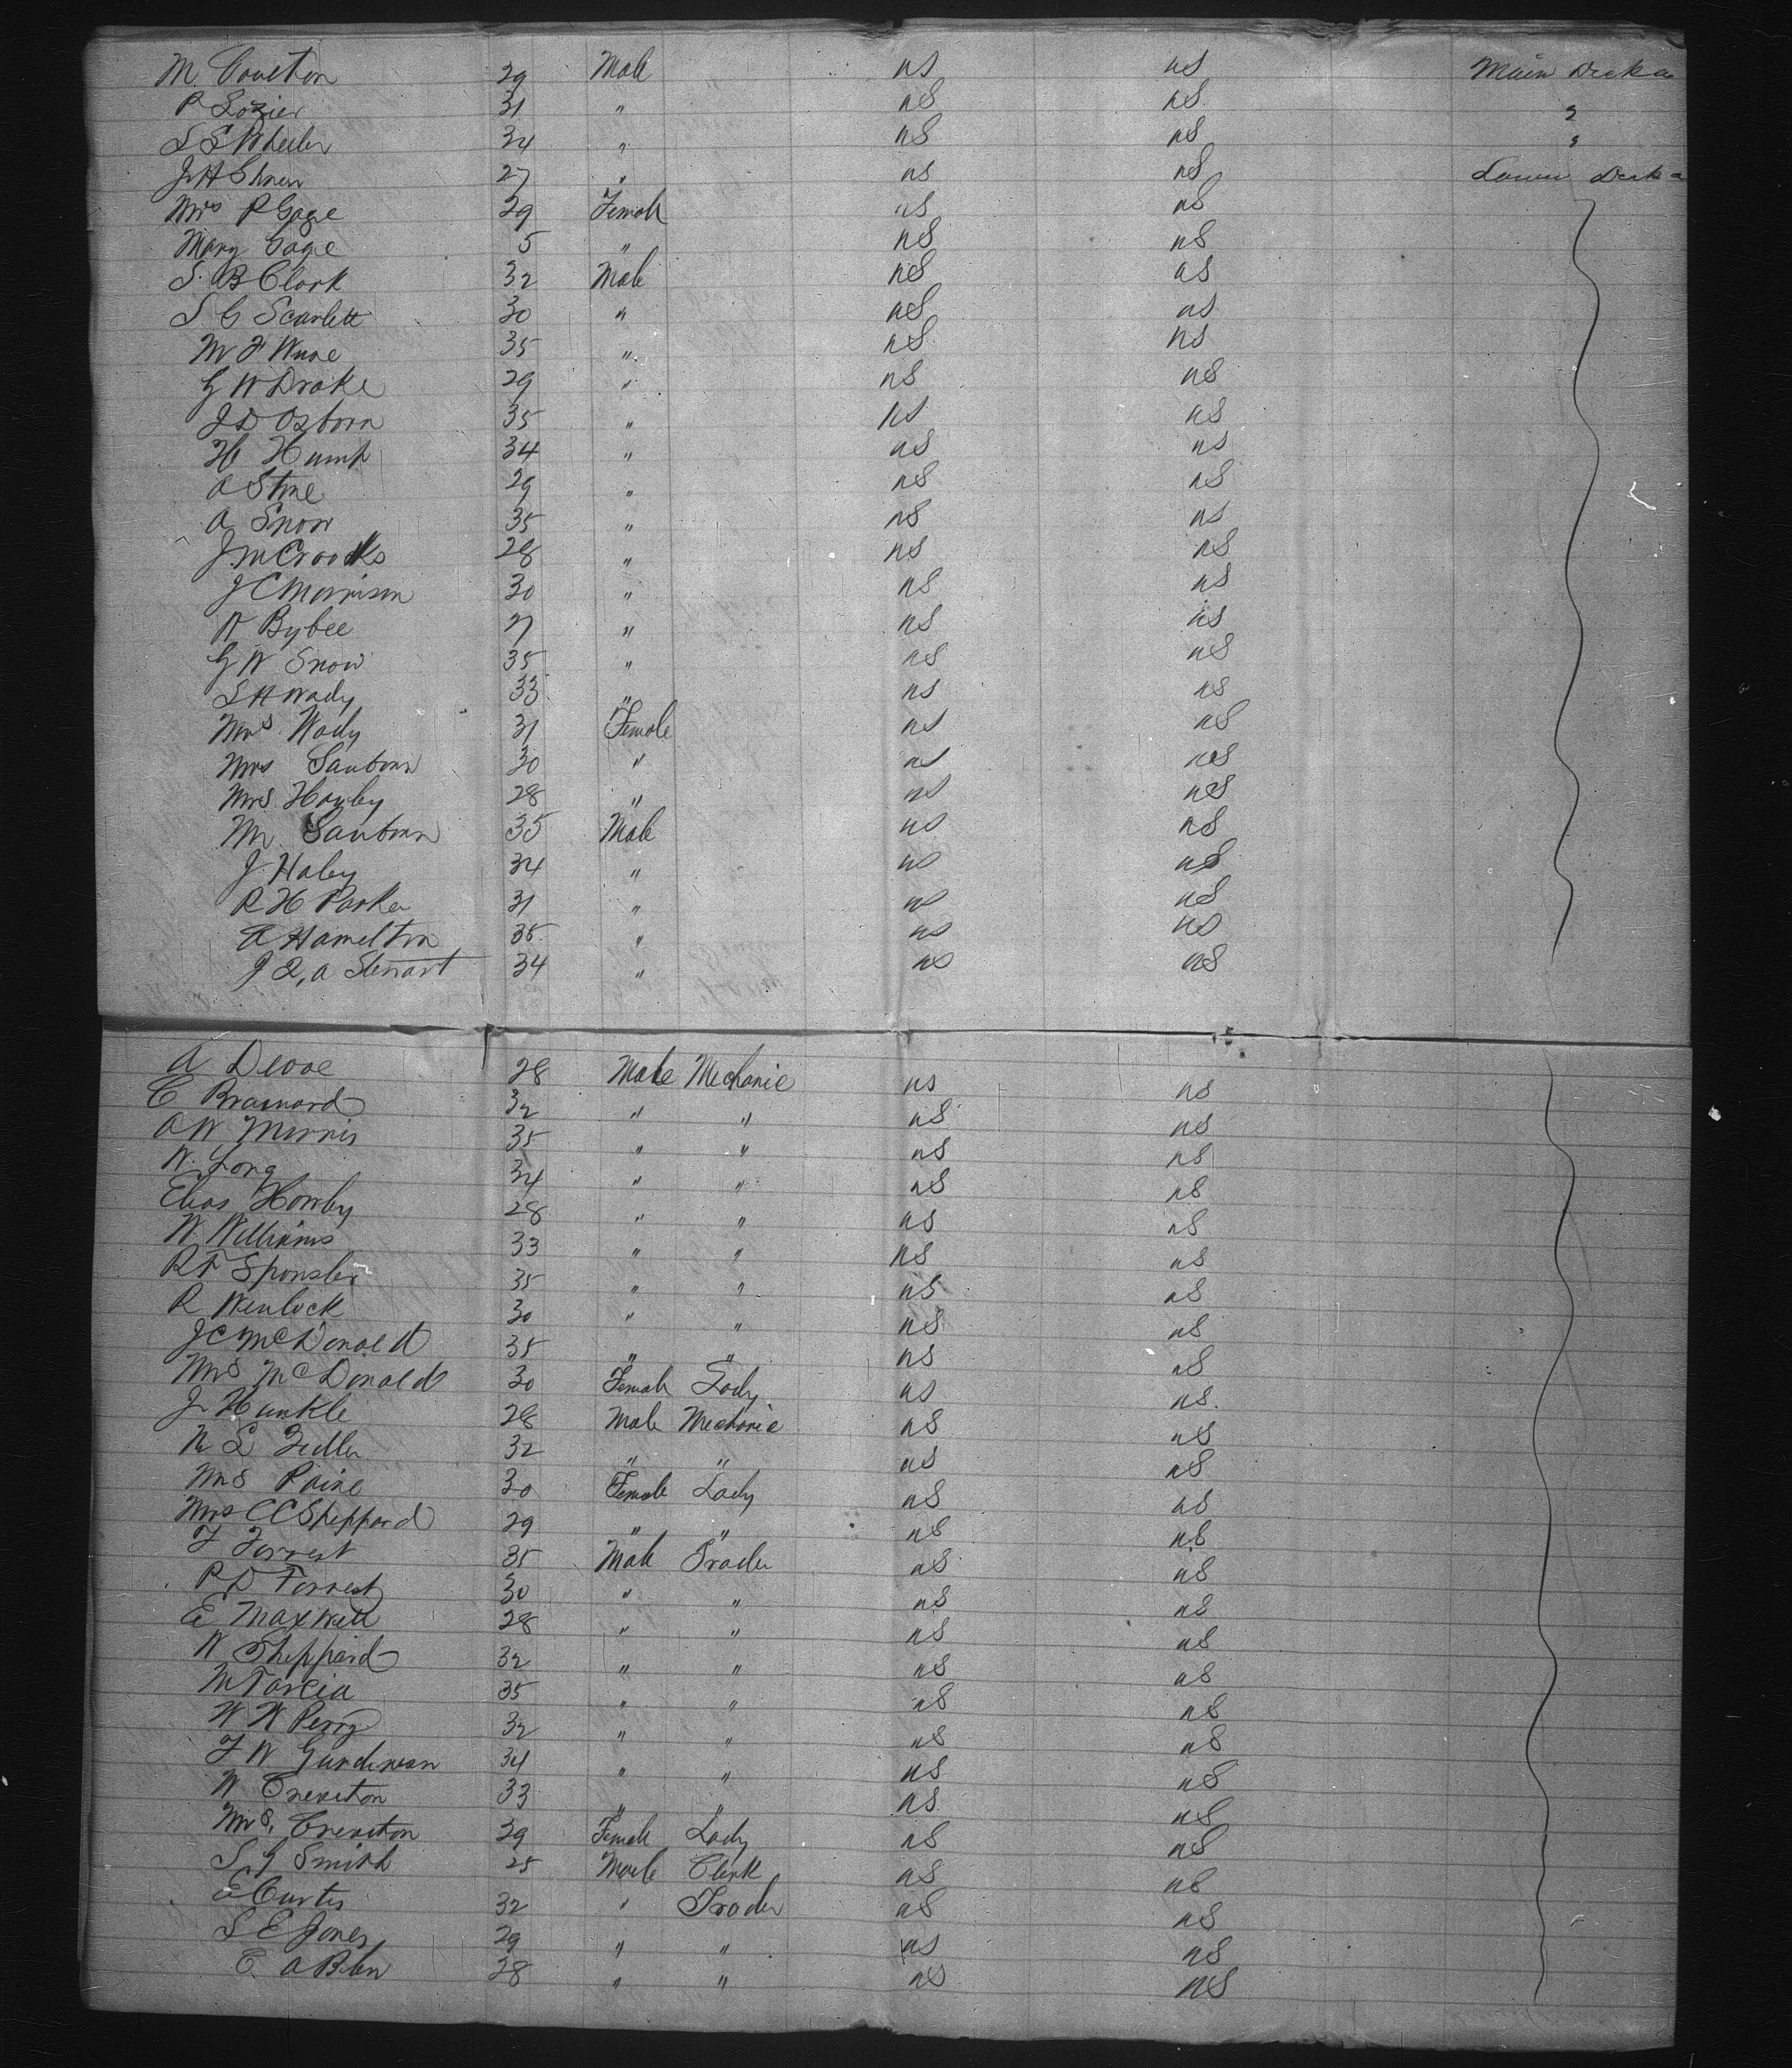 M. Coulton 29 Male us us Main Deck a
P Lozier 31 " us us "
S S Wheeler 34 " us us "
J H Shaen 27 " us us Lower Deck a
Mrs P Gage 29 Female us us
Mary Gage 5 " us us
S. B Clark 32 Male us us
S G Scarlett 30 " us us
M F Ware 35 " us us
G W Drake 29 " us us
J D Osborn 35 " us us
H Hump 34 " us us
A Stone 29 " us us
A Snow 35 " us us
J. M Crooks 28 " us us
J C Morrison 30 " us us
A Bybee 27 " us us
G W Snow 35 " us us
S H Wady 33 " us us
Mrs. Wady 31 Female us us
Mrs Sanborn 30 " us us
Mrs. Hawley 28 " us us
Mr Sanborn 35 Male us us
J. Haley 34 " us us
R H Parker 31 " us us
A Hamelton 35 " us us
J Q. A Stewart 34 " us us
A Devoe 28 Male Mechanic us us
C Brainard 32 " " us us
A W Morris 35 " " us us
W. Long 34 " " us us
Elias Hornby 28 " " us us
W. Williams 33 " " us us
R F Sponsler 35 " " us us
R Wenlock 30 " " us us
J C McDonald 35 " " us us
Mrs McDonald 30 Female Lady us us
J Hunkle 28 Male Mechanic us us
L Fuller 32 " " us us
Mrs Paine 30 Female Lady us us
Mrs C C Sheppard 29 " " us us
F Forrest 35 Male Trader us us
P D Forrest 30 " " us us
E Maxwell 28 " " us us
W Sheppard 32 " " us us
M 35 " " us us
W W Perry 32 " " us us
F W Gunderson 34 " " us us
W Creviston 33 " " us us
Mrs. Creviston 39 Female Lady us us
S G Smith 25 Male Clerk us us
E Curtis 32 " Trader us us
S E Jones 29 " " us us
C A 28 " " us us